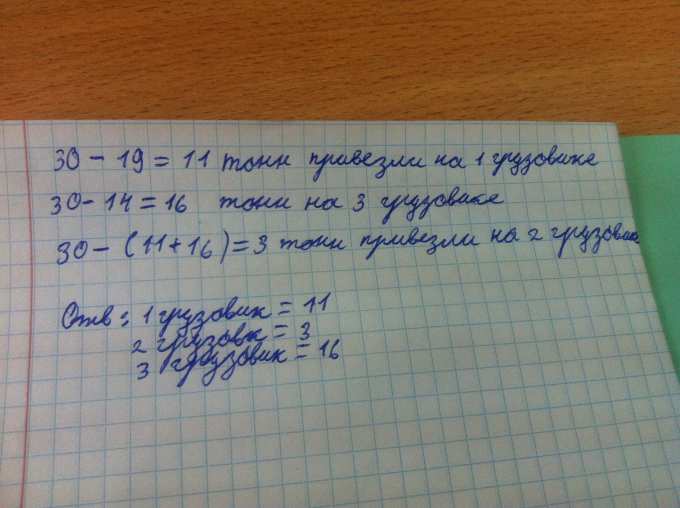 30 - 19 = 11 тонн привезли на 1 грузовике
30 - 14 = 16 тонн на 3 грузовике
30 - (11 + 16) = 3 тонн привезли на 2 грузовике
Отв: 1 грузовик = 11
2 грузовк = 3
3 грузовик = 16